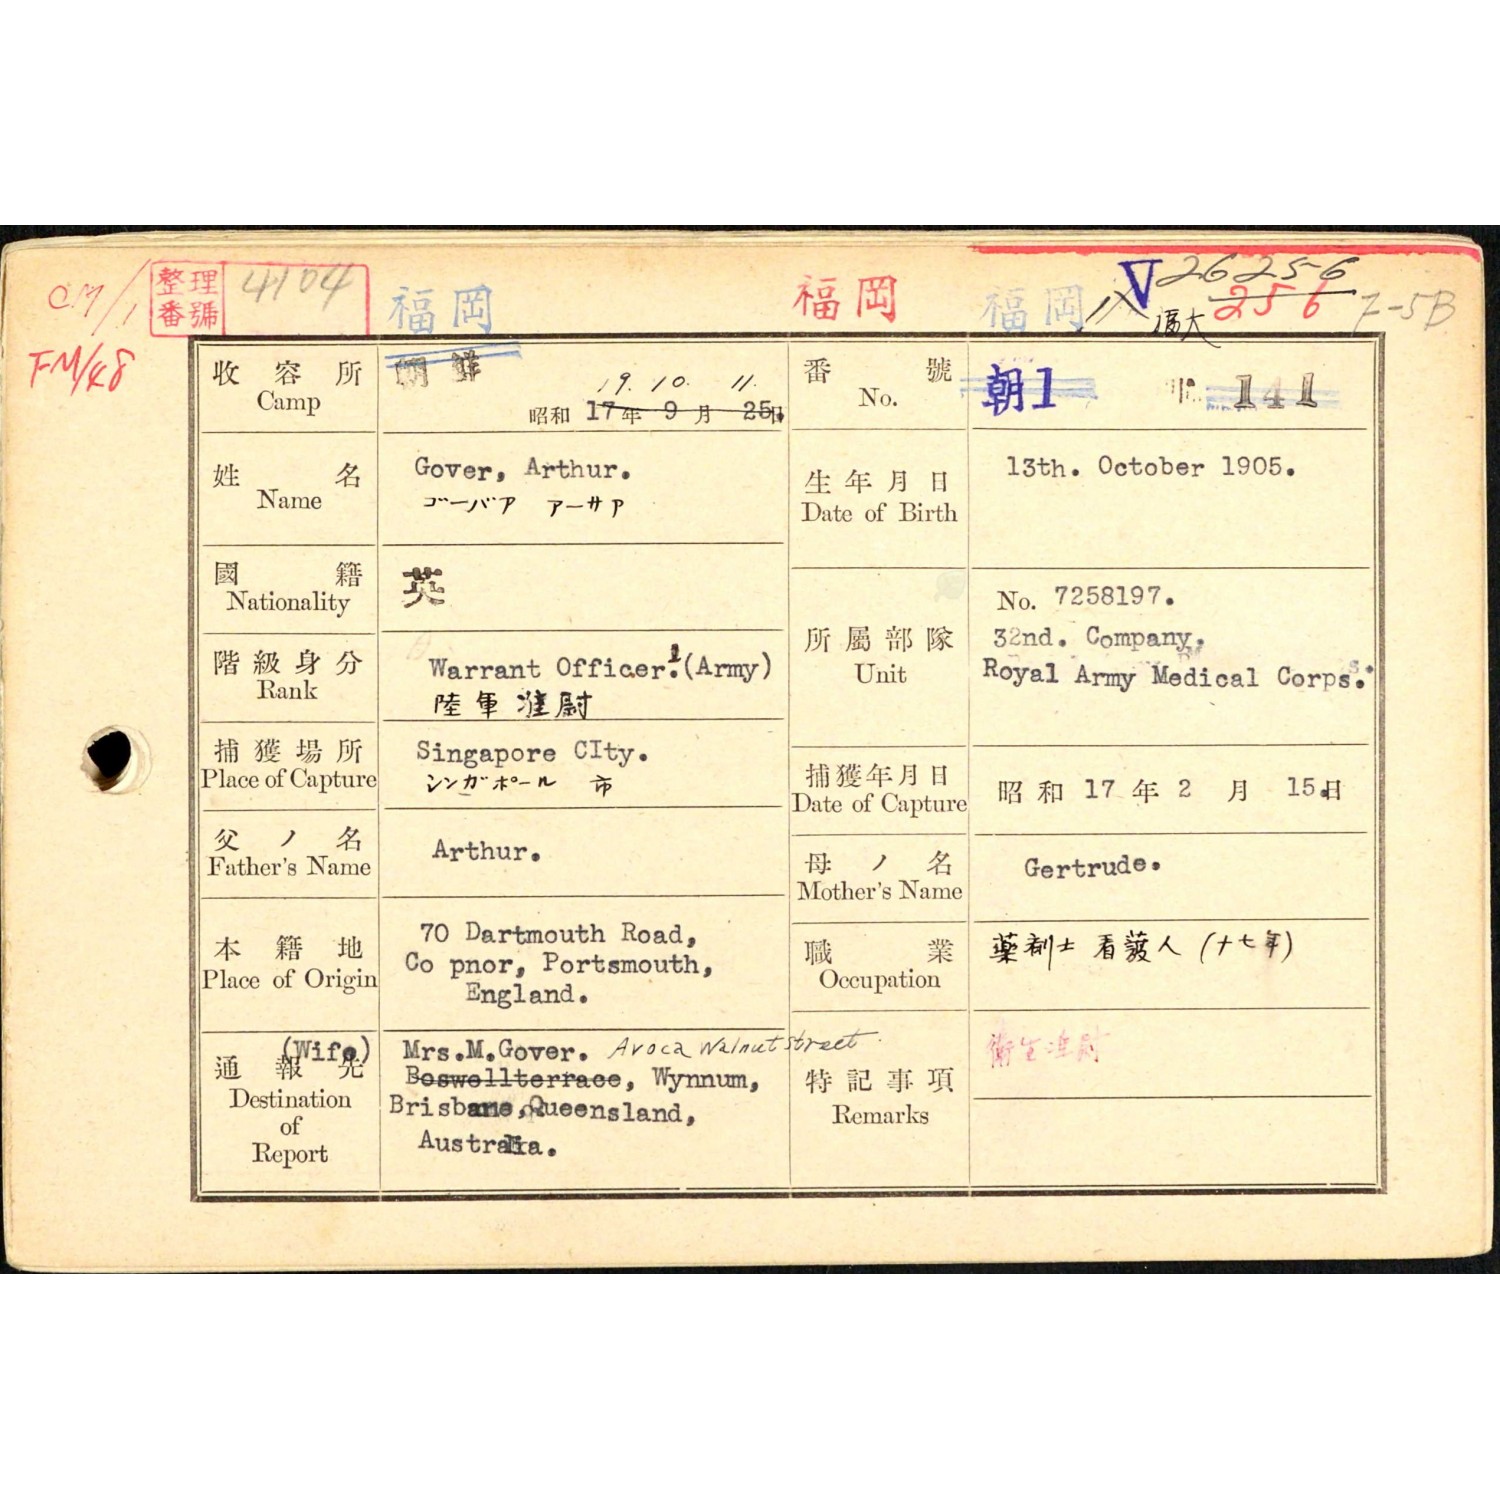 CM/1
整理番號 4104
福岡
福岡
福岡
26256
256
F-5B
FM/48
收容所
Camp
朝鮮
19. 10. 11.
昭和 17年 9月 25日
番號
No.
朝1
141
姓名
Name
Gover, Arthur.
ゴーバア アーサア
生年月日
Date of Birth
13th. October 1905.
國籍
Nationality
英
所屬部隊
Unit
No. 7258197.
32nd. Company.
Royal Army Medical Corps.
階級身分
Rank
Warrant Officer.1(Army)
陸軍准尉
捕獲場所
Place of Capture
Singapore CIty.
シンガポール 市
捕獲年月日
Date of Capture
昭和 17 年 2 月 15日
父ノ名
Father's Name
Arthur.
母ノ名
Mother's Name
Gertrude.
本籍地
Place of Origin
70 Dartmouth Road,
Co pnor, Portsmouth,
England.
職業
Occupation
藥剤士 看護人 (十七年)
通報先
(Wife)
Destination
of
Report
Mrs.M.Gover. Avoca Walnut street
Boswellterrace, Wynnum,
Brisbane, Queensland,
Australia.
特記事項
Remarks
衛生准尉